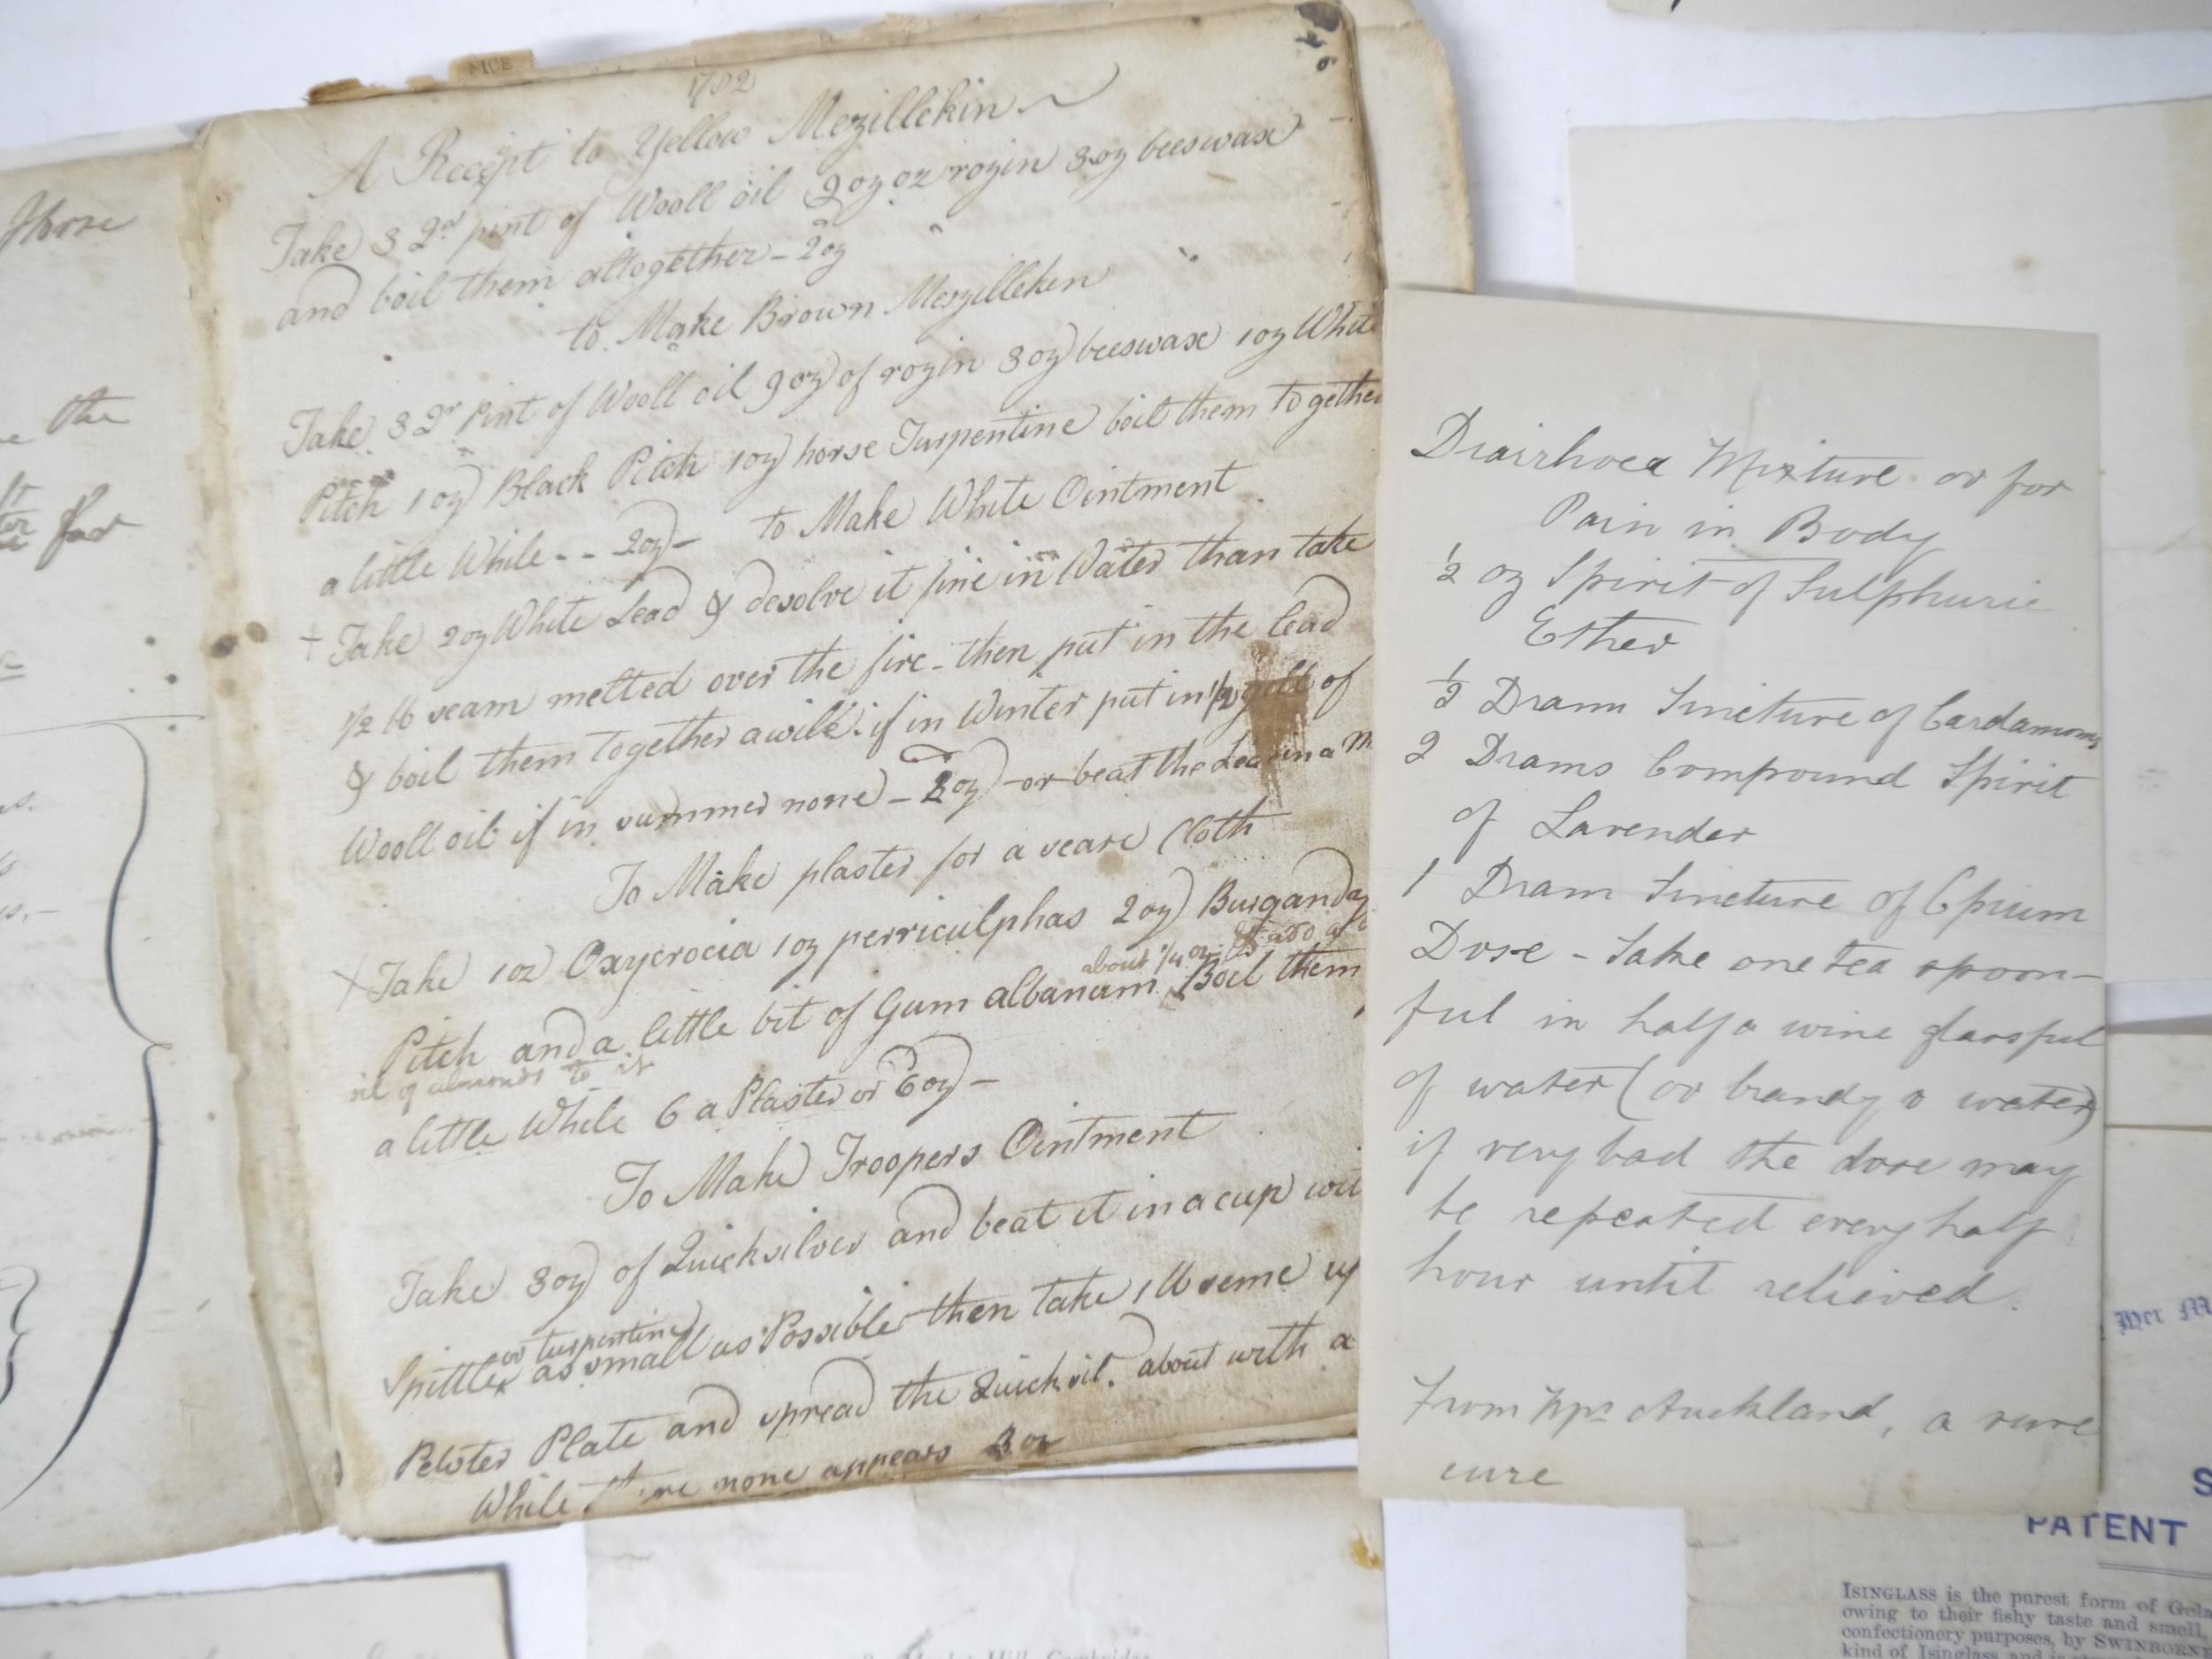 Horse
the
for
NICE
1782
A Recept to Yellow Mezillekin
Take 3 Qr pint of Wooll oil 9 oz oz rozin 3 oz beeswax
and boil them altogether - 2 oz
to Make Brown Mezilleken
Take 3 Qr Pint of Wooll oil 9 oz of rozin 3 oz beeswax 1 oz White
Pitch 1 oz Black Pitch 1 oz horse Turpentine boil them together
a little While - - 2 oz - to Make White Ointment
+ Take 2 oz White Lead & desolve it fine in Water than take
1/2 lb seam melted over the fire - then put in the lead
& boil them together awile. if in Winter put in 1/2 gill of
Wooll oil if in summer none - 2 oz - or beat the Lead in a M
To Make plaster for a seare Cloth
+ Take 1 oz Oxycrocia 1 oz perriculphas 2 oz Burganday
about 1/4 oz & add a
Pitch and a little bit of Gum albanum Boil them
oil of almonds to it
a little While 6 a Plaster or 6 oz -
To Make Troopers Ointment
Take 3 oz of Quicksilver and beat it in a cup wit
or turpentine
Spittle x as small as Possible then take 1 lb seme up
Pewter Plate and spread the Quicksil. about with a
While there none appears 3 oz
Diairhoea Mixture or for
Pain in Body
1/2 oz Spirit of Sulphuric
Ether
1/2 Dram Tincture of Cardamoms
2 Drams Compound Spirit
of Lavender
1 Dram Tincture of Opium
Dose - Take one tea spoon-
ful in half a wine glassful
of water (or brandy & water)
if very bad the dose may
be repeated every half
hour until relieved.
From Mrs Auckland, a sure
cure
Her M
S
PATENT
ISINGLASS is the purest form of Gela
owing to their fishy taste and smell,
confectionery purposes, by SWINBORNE
kind of Isinglass and is
Hill, Cambridge